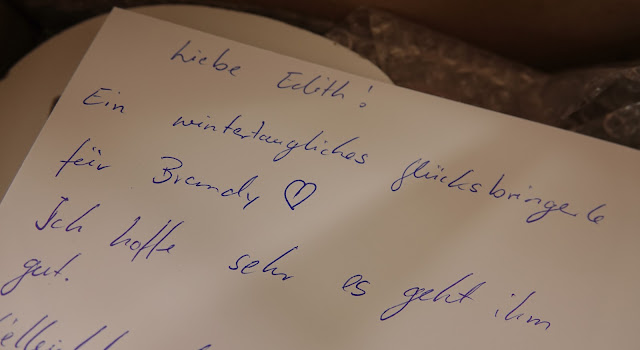 Liebe Edith!
Ein wintertaugliches Glücksbringerle
für Brandy ♡
Ich hoffe sehr es geht ihm
gut.